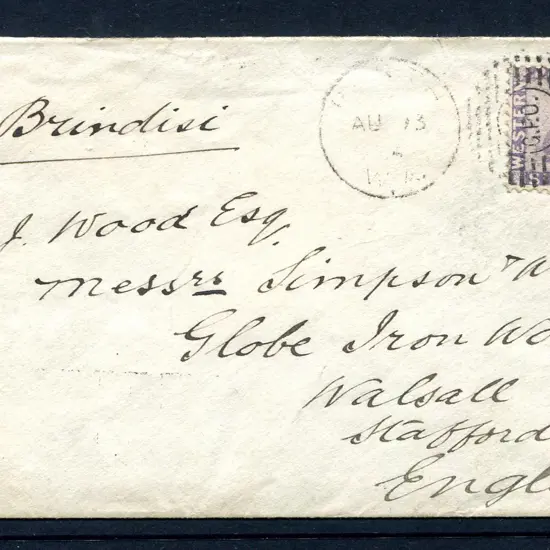 Brindisi
AU 13
W.A.
G.P.O.
WESTERN
J. Wood Esq.
Messrs Simpson & W
Globe Iron Wo
Walsall
Stafford
Engl